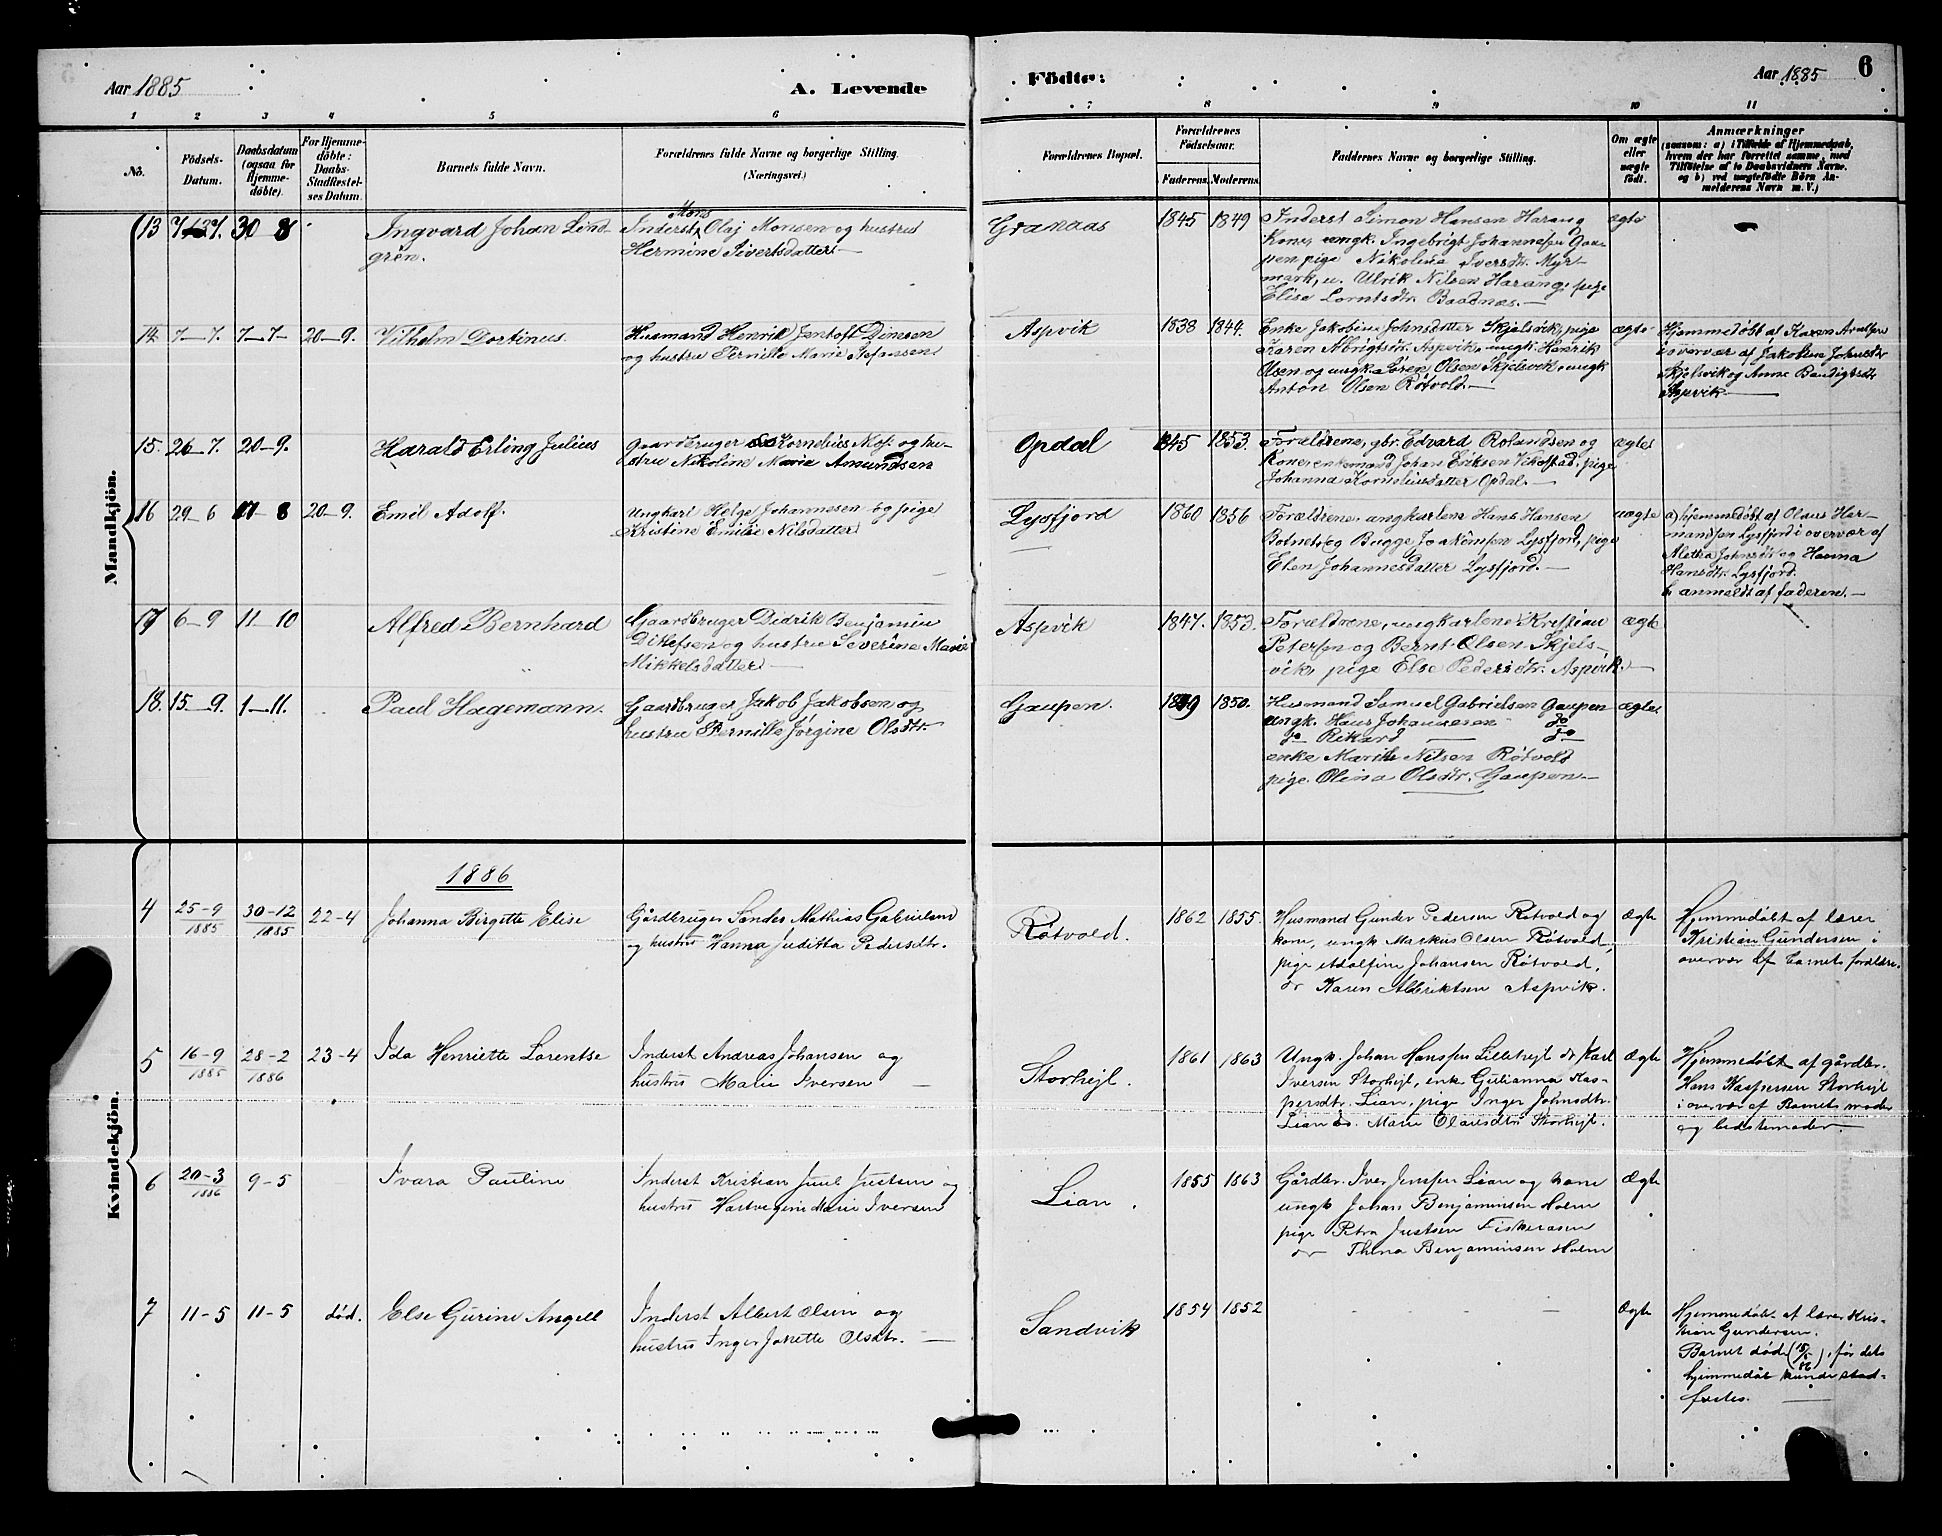 Aar 1885
A. Levende
Födte:
Aar 1885
6
1 2 3 4 5 6 7 8 9 10 11
No.
Födsels-
Datum.
Daabsdatum
(ogsaa for
Hjemme-
döbte).
For Hjemme-
döbte:
Daabs-
Stadfæstel-
ses Datum.
Barnets fulde Navn.
Forældrenes fulde Navne og borgerlige Stilling.
(Næringsvei.)
Forældrenes Bopæl.
Forældrenes
Födselsaar.
Faderens. Moderens.
Faddernes Navne og borgerlige Stilling.
Om ægte
eller
uægte
födt.
Anmærkninger
(saasom: a) i Tilfælde af Hjemmedaab,
hvem der har forrettet samme, med
Tilföielse af to Daabsvidners Navne.
og b) ved uægtefödte Börn An-
melderens Navn m. V.)
Mandkjön.
13 30 8
Ingvard Johan Lind
grën.
Mons
Inderst Olaj Monsen og hustru
Hermine Sivertsdatter
Granaas
1845 1849
Inderst Simon Hansen Harang
Kone, ungk. Ingebrigt Johannesen Gau-
pen pige Nikolina Iversdtr. Myr-
mark, u. Ulrik Nilsen Harang, pige
Elise Lorntsdtr. Baadnæs.
ægte
14 7-7. 7-7- 20-9.
Vilhelm Dortinus.
Husmand Henrik Jentoft Dinesen
og hustru Pernille Marie
Aspvik
1838 1844.
Enke Jakobine Johnsdatter Skjelsvik, pige
Karen Albrigtsdtr. Aspvik, ungk. Henrik
Olsen og ungk. Sören Olsen Skjelsvik, ungk
Anton Olsen Røtvold.
ægte
Hjemmedøbt af Karen
i overvær af Jakobine Johnsdtr
Skjelsvik og Anne Bendigtsdtr
Aspvik
15. 26-7. 20-9.
Harald Erling Julius
Gaardbruger Kornelius og hu-
stru Nikoline Marie Amundsen
Opdal
1845 1853.
Forældrene, gbr. Edvard Rolandsen og
Kone, enkemand Johan Eriksen Vikestad, pige
Johanna Korneliusdatter Opdal.
ægte
16 29-6 8 20-9.
Emil Adolf.
Ungkarl Helge Johannesen og pige
Kristine Emilie Nilsdatter
Lysfjord
1860 1856
Forældrene, ungkarlene Hans Hansen
Botnet og Bugge Joakimsen Lysfjord, pige
Elen Johannesdatter Lysfjord.
uægte
a) hjemmedøbt af Olaus Her-
mandsen Lysfjord i overvær af
Aletta Johnsdtr og Hanna
Hansdtr. Lysfjord.
b. anmeldt af faderen.
17 6-9 11-10
Alfred Bernhard
Gaardbruger Didrik Benjamin
Ditlefsen og hustru Severine Marie
Mikkelsdatter
Aspvik
1847. 1853.
Forældrene, ungkarlene Kristian
Petersen og Bernt Olsen Skjels-
vik, pige Else Pedersdtr. Aspvik.
ægte
18. 15-9. 1-11.
Paul Hagemann.
Gaardbruger Jakob Jakobsen og
hustru Pernille Jørgine Olsdtr.
Gaupen.
1850.
Husmand Samuel Gabrielsen Gaupen
ungk. Hans Johannesen do
do Rikard — do
enke Marith Nilsen Røtvold
pige Olina Olsdtr. Gaupen
ægte
Kvindekjön.
1886
4 25-9 1885 30-12 1885 22-4
Johanna Birgitte Elise
Gårdbruger Sander Mathias Gabrielsen
og hustru Hanna Juditta Pedersdtr.
Røtvold.
1862 1855.
Husmand Gunder Pedersen Røtvold og
kone, ungk Markus Olsen Røtvold,
pige Adolfine Johansen Røtvold,
do Karen Albriktsen Aspvik.
Ægte
Hjemmedøbt af lærer
Kristian Gundersen i
overvær af barnets forældre.
5 16-9 1885 28-2 1886 23-4
Ida Henriette Lorentse
Inderst Andreas Johansen og
hustru Marie Iversen
Storhejl.
1861 1863
Ungk. Johan Hanssen Lillehejl do Karl
Iversen Storhejl, enk. Gulianna Kas-
persdtr. Lian, pige Inger Johnsdtr.
Lian do. Marie Olausdtr Storhejl.
Ægte
Hjemmedøbt af gårdbr.
Hans Kaspersen Storhejl
i overvær af Barnets moder
og bedstemoder.
6 20-3 1886 9-5
Ivara Pauline
Inderst Kristian Juul Justsen og
hustru Hartvegine Marie Iversen
Lian.
1855 1863
Gårdbr. Iver Jenssen Lian og kone
ungk Johan Benjaminsen Holm
pige Petra Justsen Fiskeraasen
do Thina Benjaminsen Holm
Ægte
7 11-5 11-5 død.
Else Gurine Angell
Inderst Albert Olsen og
hustru Inger Janette Olsdtr.
Sandvik
1854 1852
Ægte
Hjemmedøbt af lærer Kris-
tian Gundersen.
Barnet døde (15/5 86), før dets
hjemmedåb kunde stad-
fæstes.